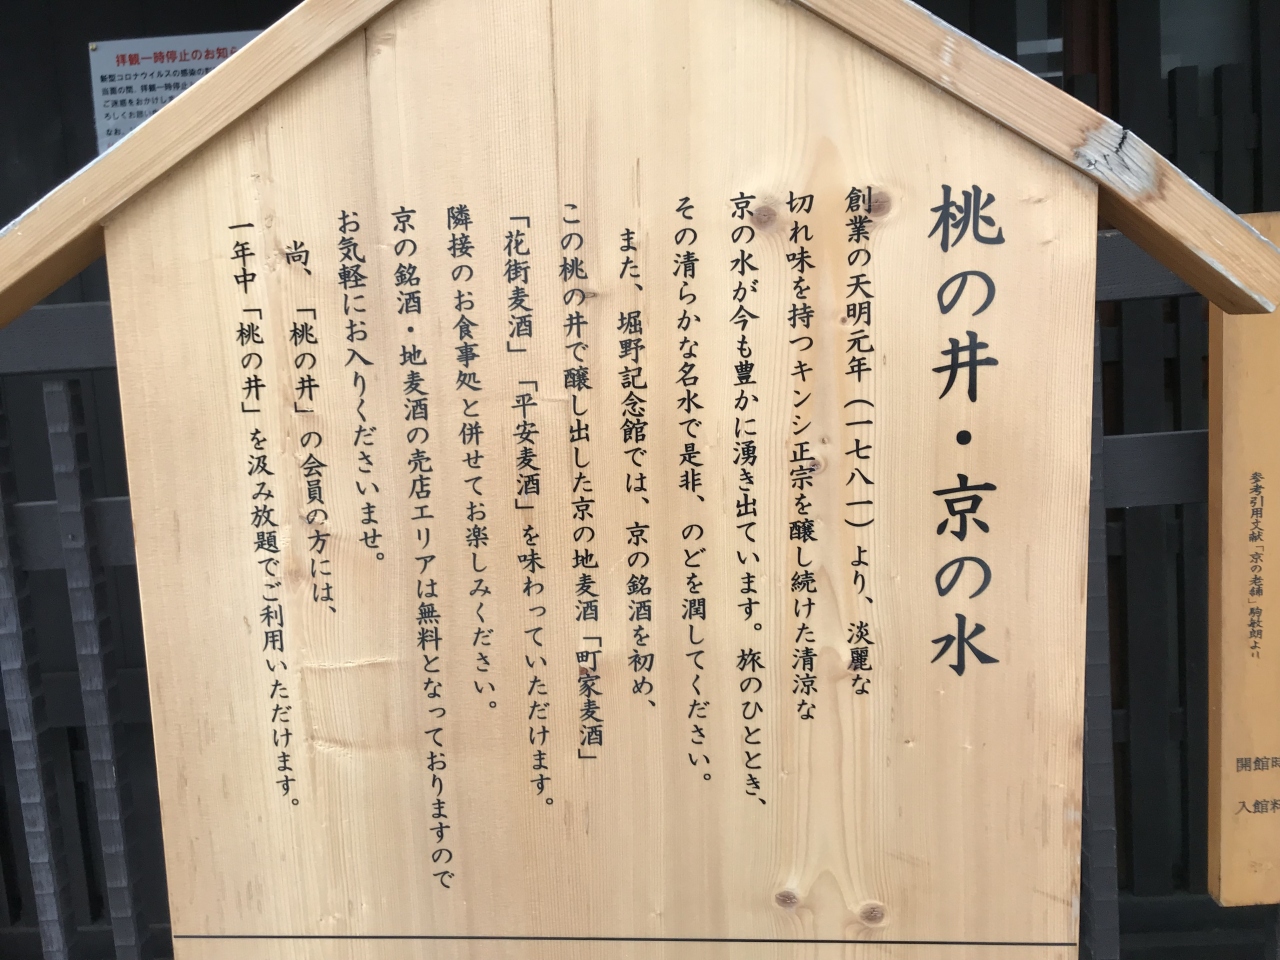 桃の井・京の水
創業の天明元年(一七八一)より、淡麗な
切れ味を持つキンシ正宗を醸し続けた清涼な
京の水が今も豊かに湧き出ています。旅のひととき、
その清らかな名水で是非、のどを潤してください。
また、堀野記念館では、京の銘酒を初め、
この桃の井で醸し出した京の地麦酒「町家麦酒」
「花街麦酒」「平安麦酒」を味わっていただけます。
隣接のお食事処と併せてお楽しみください。
京の銘酒・地麦酒の売店エリアは無料となっておりますので
お気軽にお入りくださいませ。
尚、「桃の井」の会員の方には、
一年中「桃の井」を汲み放題でご利用いただけます。
拝観一時停止のお知ら
新型コロナウイルスの感染の
当面の間、拝観一時停止
ご迷惑をおかけしま
ろしくお願い
なお、
参考引用文献「京の老舗」駒敏朗より
開館時
入館料